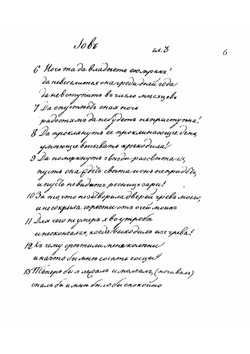 Іовъ гл. 3 6
6 Ночь та да владѣетъ ею мракъ!
да не веселится она среди дней года
да не вступитъ въ число мѣсяцевъ
7 Да опустѣетъ оная ночь
радостямъ да не будетъ неприступна!
8 Да проклянутъ ее проклинающіе день,
умѣющіе вызывать крокодила!
9 Да померкнутъ звѣзды разсвѣта ея,
пусть она ждетъ свѣта и онъ не придетъ,
и пусть не видитъ ресницъ зари!
10 За то что не затворила дверей чрева моего,
и не сокрыла горести отъ очей моихъ
11 Для чего не умеръ я въ утробѣ
и не скончался, когда выходилъ изъ чрева!
12 Къ чему срѣтили меня колѣни
и на что было мнѣ сосать сосцы!
13 Теперь бы я лежалъ и молчалъ, (почивалъ)
спалъ бы и мнѣ было бы спокойно